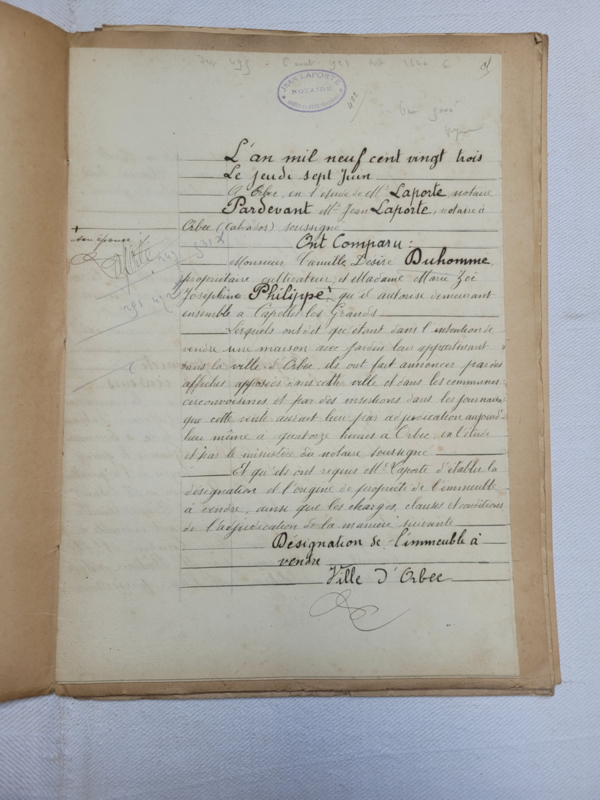 JEAN LAPORTE
NOTAIRE
L'an mil neuf cent vingt trois
Le jeudi sept Juin
A Orbec, en l'étude de Me Laporte, notaire
Pardevant Me Jean Laporte, notaire à
Orbec (Calvados) soussigné
Ont Comparu :
son épouse
Monsieur Camille Désiré Duhomme,
propriétaire cultivateur, et Madame Marie Zoé
Joséphine Philippe, qu'il autorise demeurant
ensemble à Capelles les Grands
Lesquels ont dit que étant dans l'intention de
vendre une maison avec jardin leur appartenant
dans la ville d'Orbec, ils ont fait annoncer par des
affiches apposées dans cette ville et dans les communes
circonvoisines et par des insertions dans les journaux
que cette vente aurait lieu par adjudication aujourd'
hui même à quatorze heures à Orbec, en l'étude
et par le ministère du notaire soussigné
Et qu'ils ont requis Me Laporte d'établir la
désignation et l'origine de propriété de l'immeuble
à vendre, ainsi que les charges, clauses et conditions
de l'adjudication de la manière suivante
Désignation de l'immeuble à
vendre
Ville d'Orbec